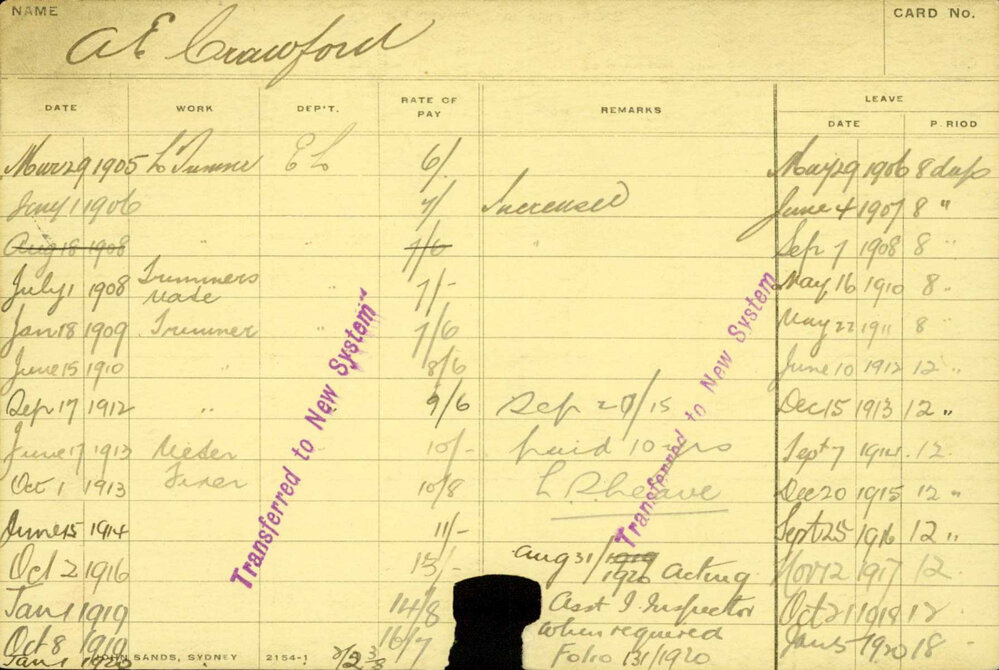 NAME A E Crawford CARD No.
DATE WORK DEP'T. RATE OF PAY REMARKS LEAVE
DATE P.RIOD
Mar 29 1905 L Trimmer E L 6/. May 29 1906 8 days
Jany 1 1906 7/ Increased June 4 1907 8 "
Aug 18 1908 " 7/6 " Sep 7 1908 8 "
July 1 1908 Trimmers Mate " 7/- May 16 1910 8 "
Jan 18 1909 Trimmer " 7/6 May 22 1911 8 "
June 15 1910 " 8/6 June 10 1912 12 "
Sep 17 1912 " 9/6 Sep 27/15 Dec 15 1913 12 "
June 17 1913 10/- paid 10 yrs Sept 7 1914 12
Oct 1 1913 Fixer 10/8 L. S. leave Dec 20 1915 12 "
June 15 1914 11/- Sept 25 1916 12 "
Oct 2 1916 13/- Aug 31/1919 1920 Acting Nov 12 1917 12
Jan 1 1919 14/8 Asst I. Inspector Oct 21 1918 12 "
Oct 8 1919 16/7 when required Jan 5 1920 18 -
Jan 1 1920 SANDS, SYDNEY 2154-1 Folio 131/1920
Transferred to New System"
Transferred to New System